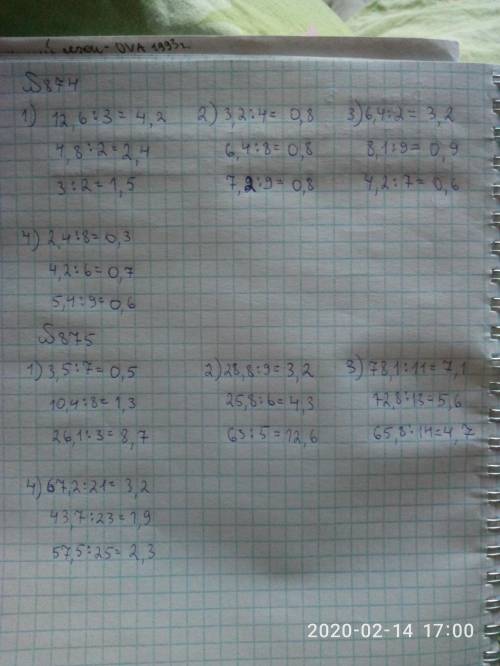 №874
1) 12,6:3=4,2 2) 3,2:4=0,8 3) 6,4:2=3,2
4,8:2=2,4 6,4:8=0,8 8,1:9=0,9
3:2=1,5 7,2:9=0,8 4,2:7=0,6
4) 2,4:8=0,3
4,2:6=0,7
5,4:9=0,6
№875
1) 3,5:7=0,5 2) 28,8:9=3,2 3) 78,1:11=7,1
10,4:8=1,3 25,8:6=4,3 72,8:13=5,6
26,1:3=8,7 63:5=12,6 65,8:14=4,7
4) 67,2:21=3,2
43,7:23=1,9
57,5:25=2,3
2020-02-14 17:00